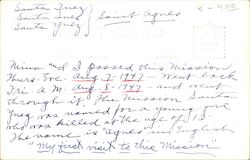 Santa Inez
Santa Ines } Saint Agnes
Santa Ynez
Mina and I passed this Mission
Thurs. Eve. Aug 7-1947. Went back
Fri A.M. Aug-8-1947- and went
through it. The Mission Santa
Ynez was named for a young girl
who was killed at the age of 13
The name is "Agnes" in English
"My first visit to this Mission"